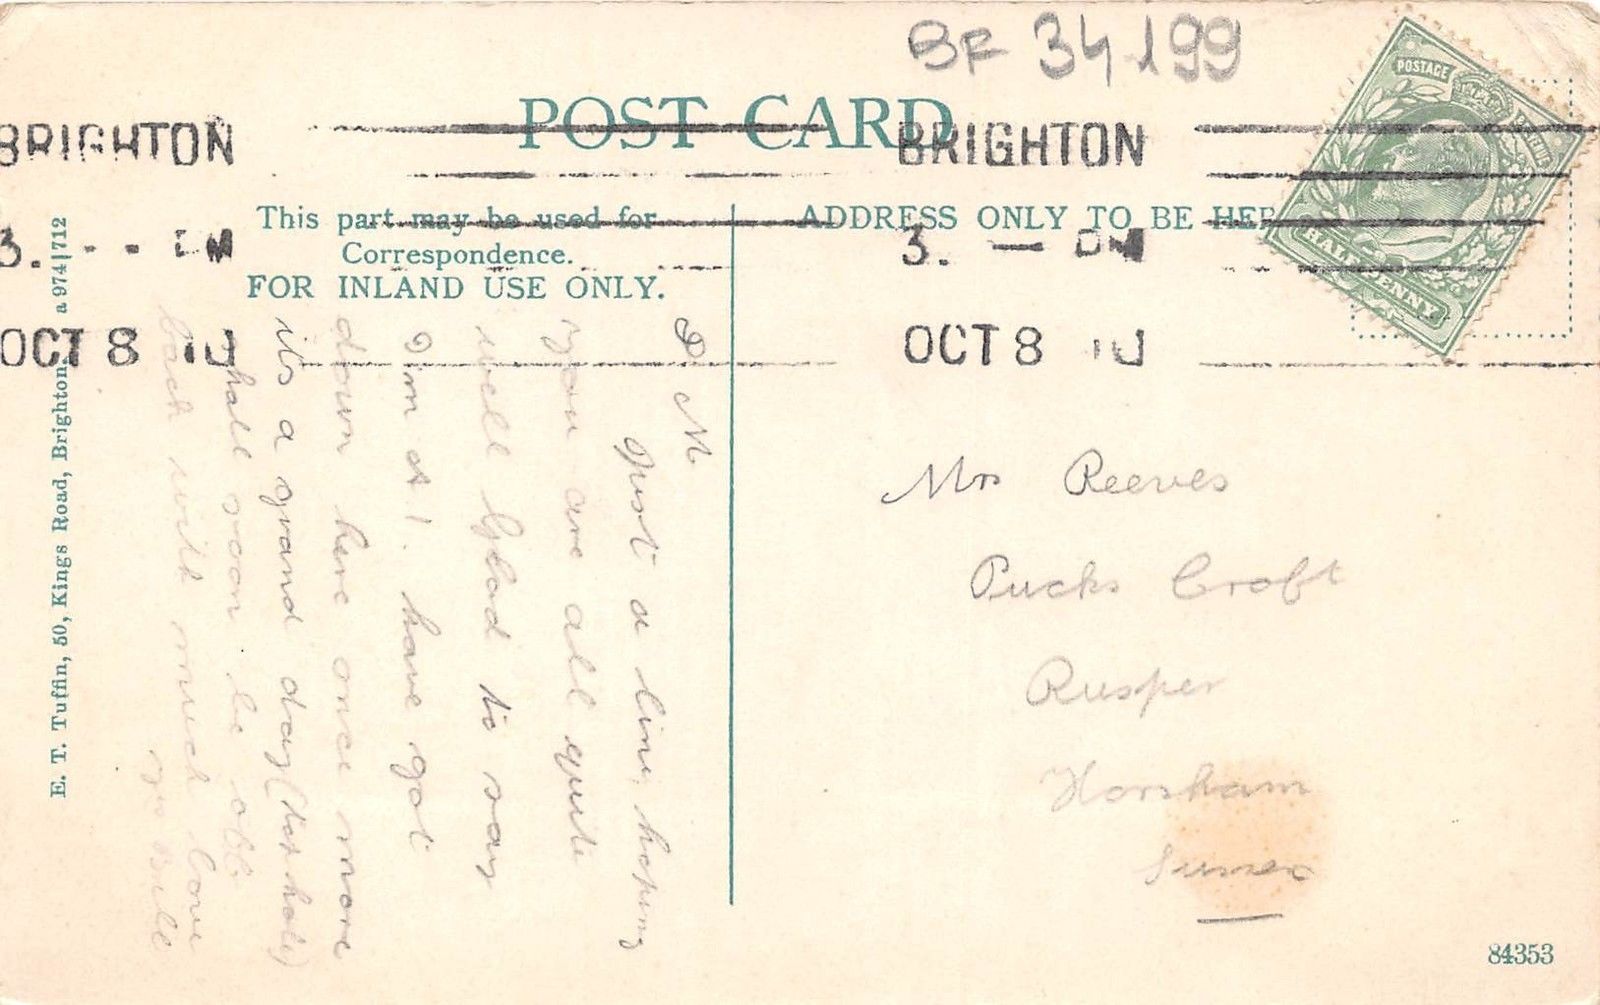 BF 34199
POST CARD
BRIGHTON
BRIGHTON
3. PM
3. PM
OCT 8 10
OCT 8 10
POSTAGE
REVENUE
HALFPENNY
This part may be used for
Correspondence.
FOR INLAND USE ONLY.
ADDRESS ONLY TO BE HERE
D M
Just a line hoping
you are all quite
well Glad to say
I'm A1. have got
down here once more
its a grand day (hot holy)
shall soon be off
back with much love
yrs Bill
Mrs Reeves
Pucks Croft
Rusper
Horsham
Sussex
E. T. Tuffin, 50, Kings Road, Brighton. a 974|712
84353